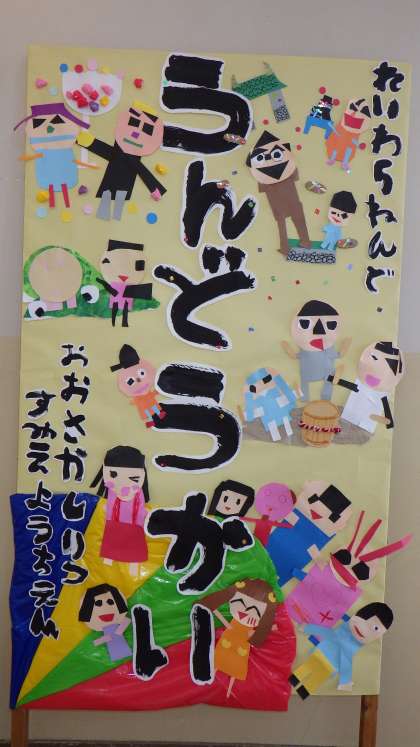 れいわらんど
うんどうかい
おおさかしりつ
すえ ようちえん